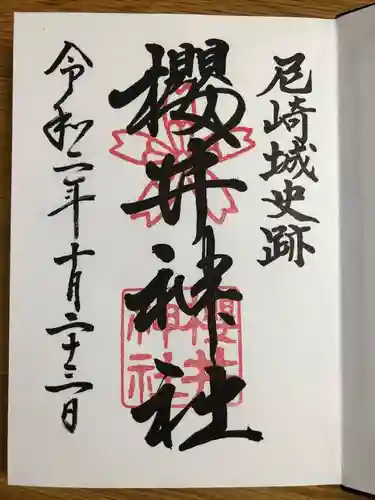 尼崎城史跡
櫻井神社
令和二年十月二十三日
櫻井
神社